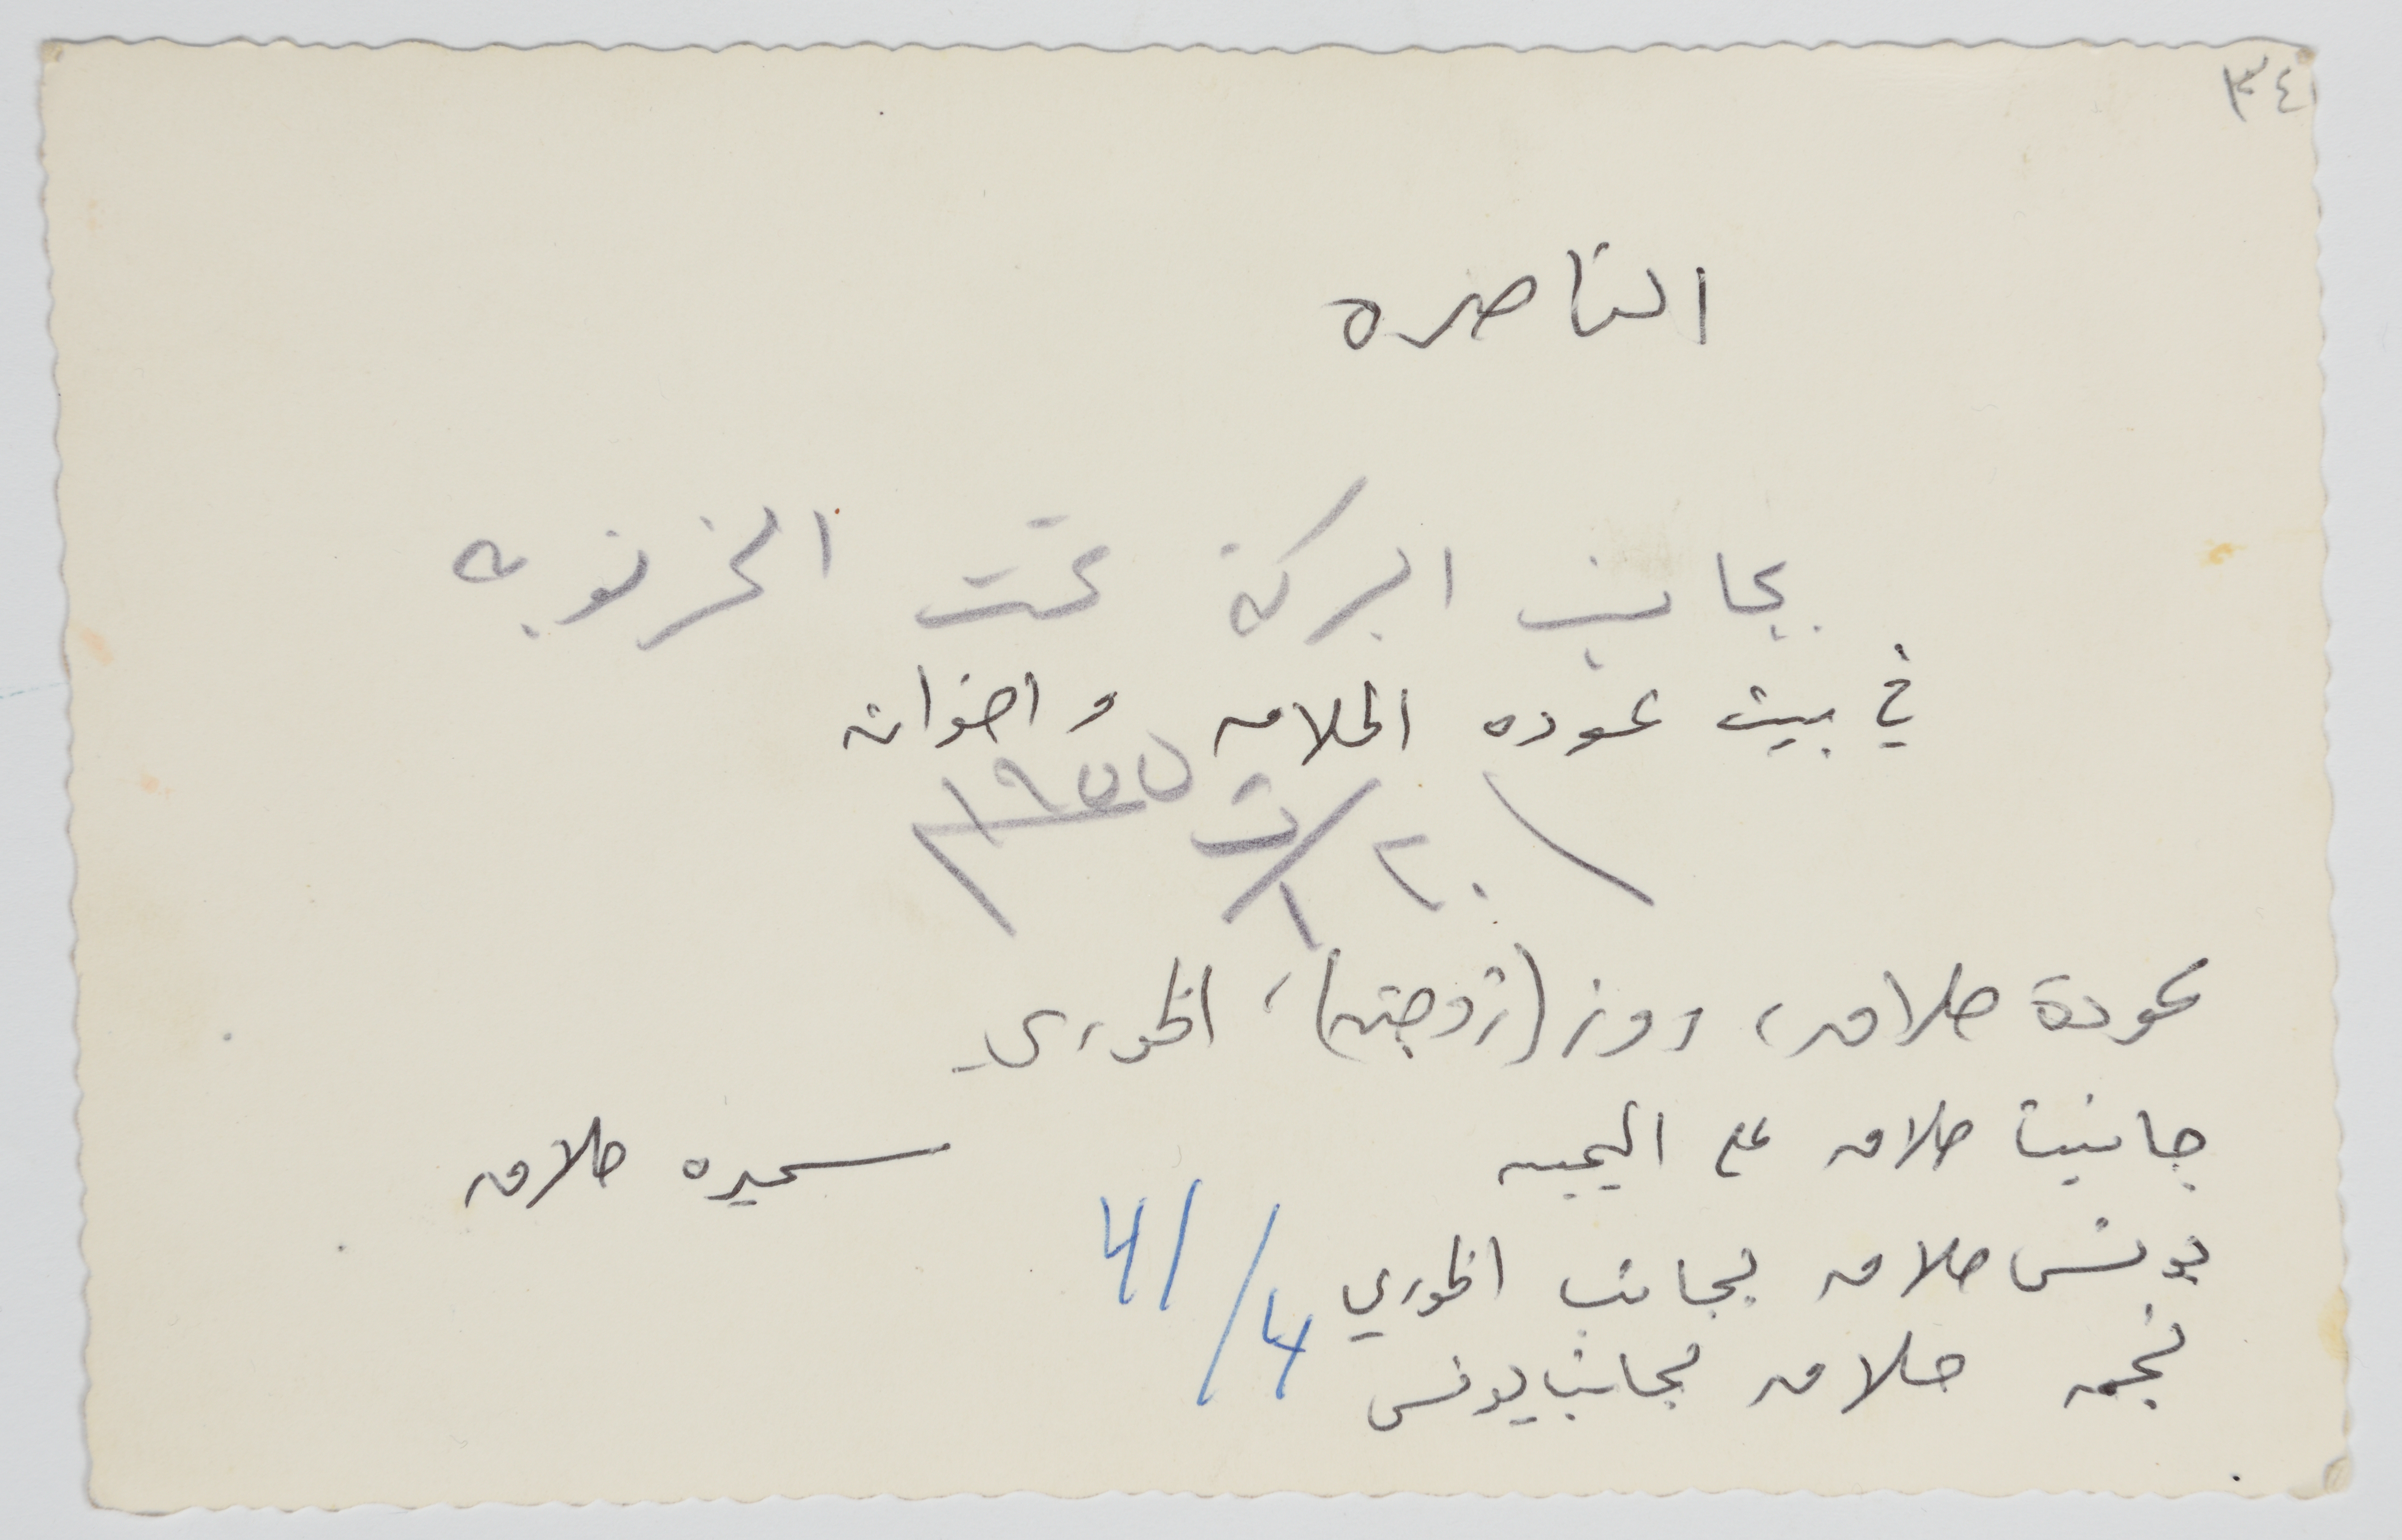 ٣٤
الناصره
بجانب البركة تحت الخرنوبه
في بيت عوده الحلاق واخوانه
٢٠/ت١ ١٩٥٥
عودة حلاق، روز (زوجته)، الخوري
جانيت حلاق مع اليمين
سميره حلاق
يونس حلاق بجانب الخوري
نجمه حلاق بجانب يونس
41/4